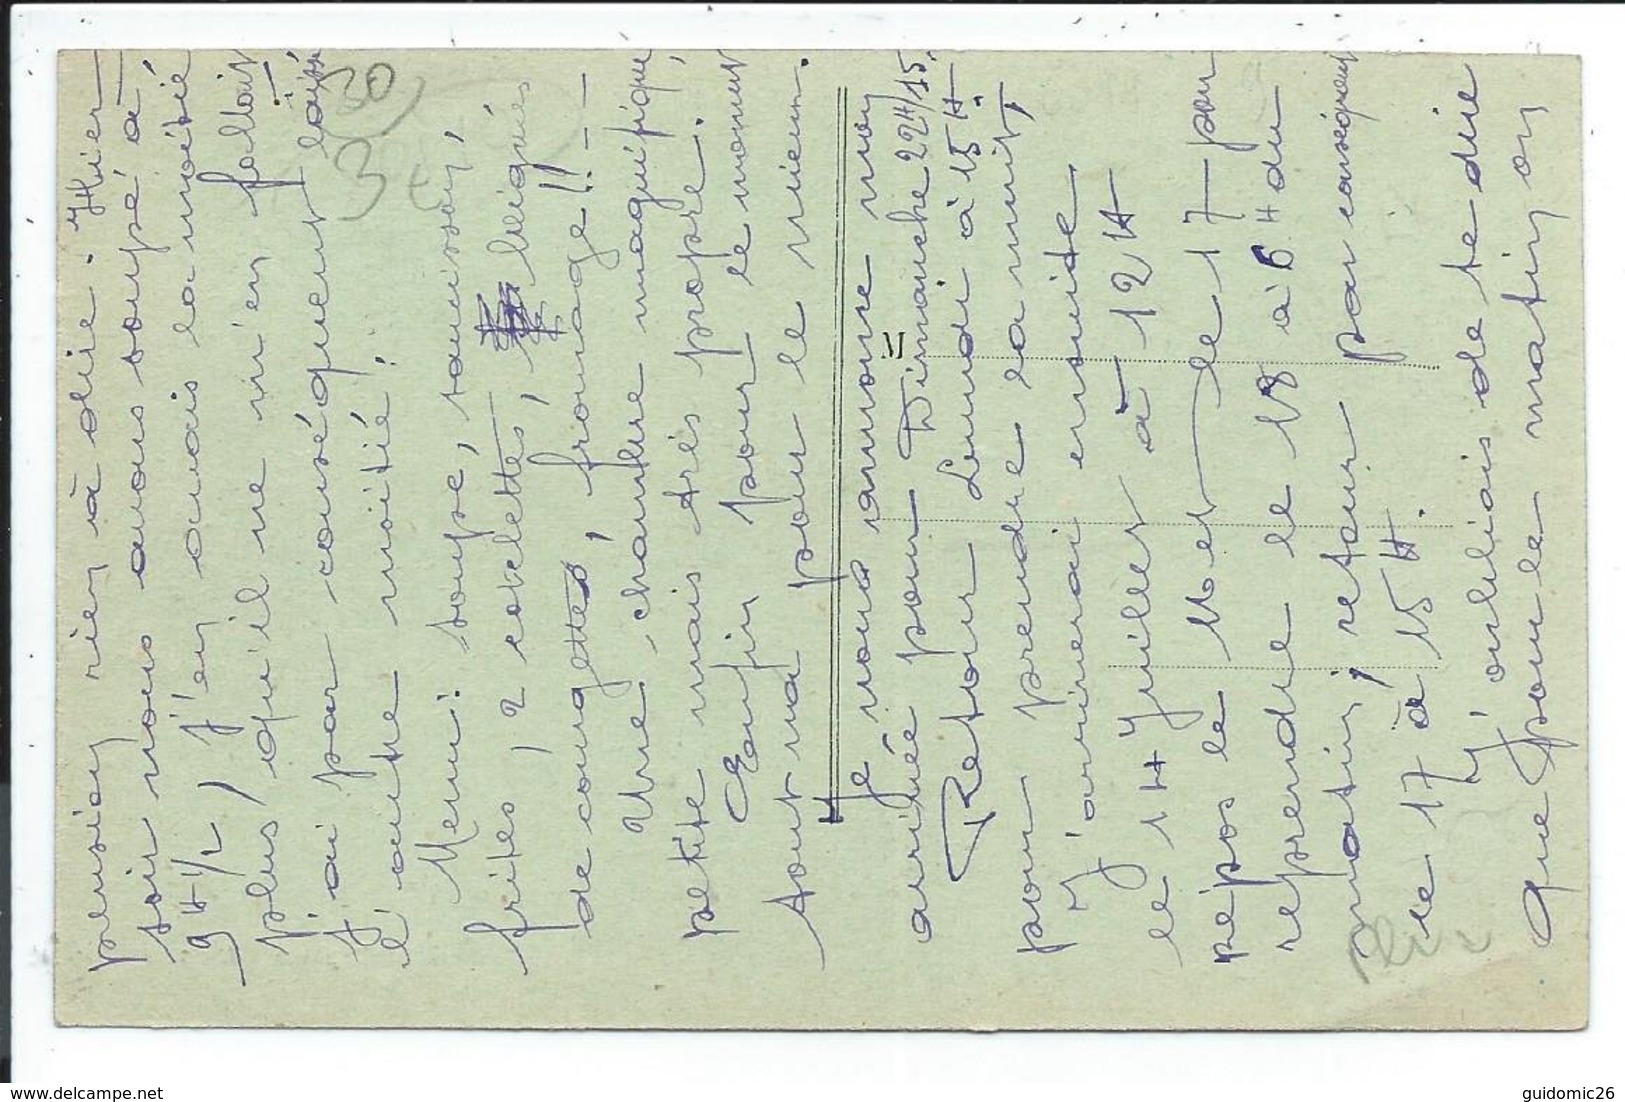 pension rien à dire. Hier
soir nous avons soupé à
9 H 1/2, j'en avais la moitié
plus, qu'il ne m'en fallait!
J'ai par conséquent laissé
l'autre moitié!
Menu: soupe, saucisson,
frites, 2 cotelettes, beignés
de courgettes, fromage!!
Une chambre magnifique,
petite mais très propre.
Enfin pour le moment
tout va pour le mieux.
Je vous annonce mon
arrivée pour Dimanche 22H/15
Retour Lundi à 15 H
pour prendre la nuit,
J'arriverai ensuite
le 14 Juillet à 12 H
repos le 16 et le 17 pour
reprendre le 18 à 6 H du
matin, retour par conséquent
le 17 à 15 H.
J'oubliais de te dire
que pour le matin on
M
30
3